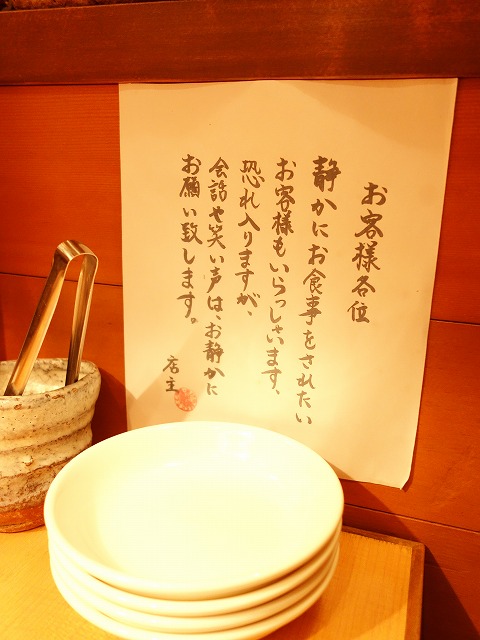 お客様各位
静かにお食事をされたい
お客様もいらっしゃいます、
恐れ入りますが、
会話や笑い声は、お静かに
お願い致します。
店主